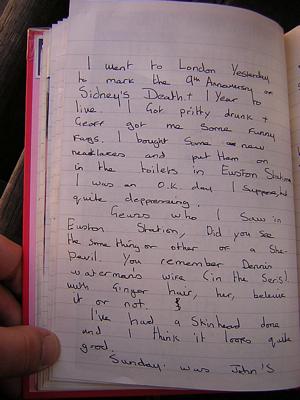 I went to London Yesterday
to mark the 9th Anniversary on
Sidney's Death. + 1 Year to
live. I Got pritty drunk +
Geoff got me some funny
Fags. I bought some new
necklaces and put them on
in the toilets in Euston Station
I was an O.K. day I suppose, but
quite deppressing.
Geuss who I Saw in
Euston Station, Did you see
the some thing or other of a She-
Devil. You remember Dennis
waterman's wife (in the Seris)
with Ginger hair, her, beleive
it or not.
I've had a Skinhead done
and I think it looks quite
good.
Sunday. was John's